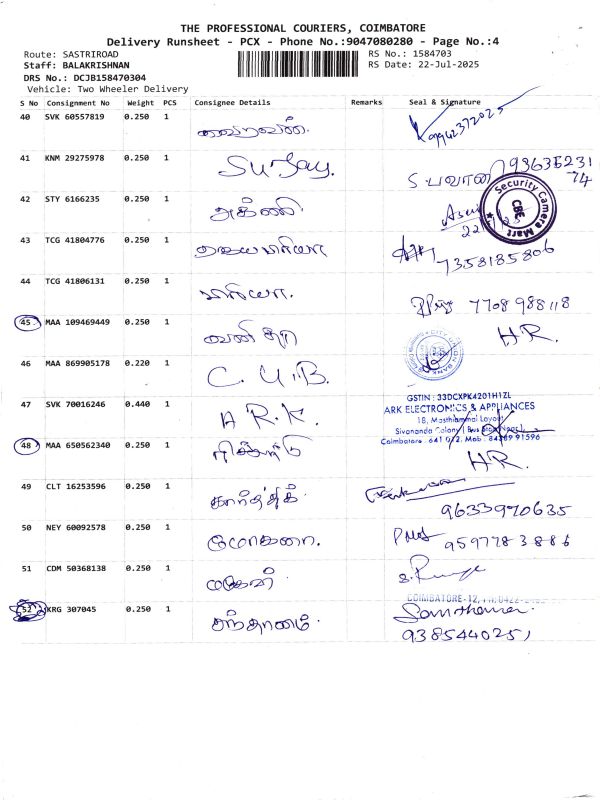 THE PROFESSIONAL COURIERS, COIMBATORE
Delivery Runsheet - PCX - Phone No.:9047080280 - Page No.:4
Route: SASTRIROAD
RS No.: 1584703
Staff: BALAKRISHNAN
RS Date: 22-Jul-2025
DRS No.: DCJB158470304
Vehicle: Two Wheeler Delivery
S No Consignment No Weight PCS Consignee Details Remarks Seal & Signature
40 SVK 60557819 0.250 1 வைரவன்.
41 KNM 29275978 0.250 1 Sujay. 93635231
74
42 STY 6166235 0.250 1 அக்னி
Security Camera Mart
CBE
43 TCG 41804776 0.250 1 7358185806
44 TCG 41806131 0.250 1 7708988118
45 MAA 109469449 0.250 1 வனிதா HR.
46 MAA 869905178 0.220 1 C.U.B.
CITY UNION BANK
47 SVK 70016246 0.440 1 A.R.K.
GSTIN : 33DCXPK4201H1ZL
ARK ELECTRONICS & APPLIANCES
18, Masthiammal Layout
Sivananda Colony
Coimbatore - 641 012. Mob : 84389 91596
48 MAA 650562340 0.250 1 HR.
49 CLT 16253596 0.250 1 கார்த்திக்
9633970635
50 NEY 60092578 0.250 1 9597783886
51 CDM 50368138 0.250 1
COIMBATORE-12,
52 KRG 307045 0.250 1 சந்தானம்
9385440251